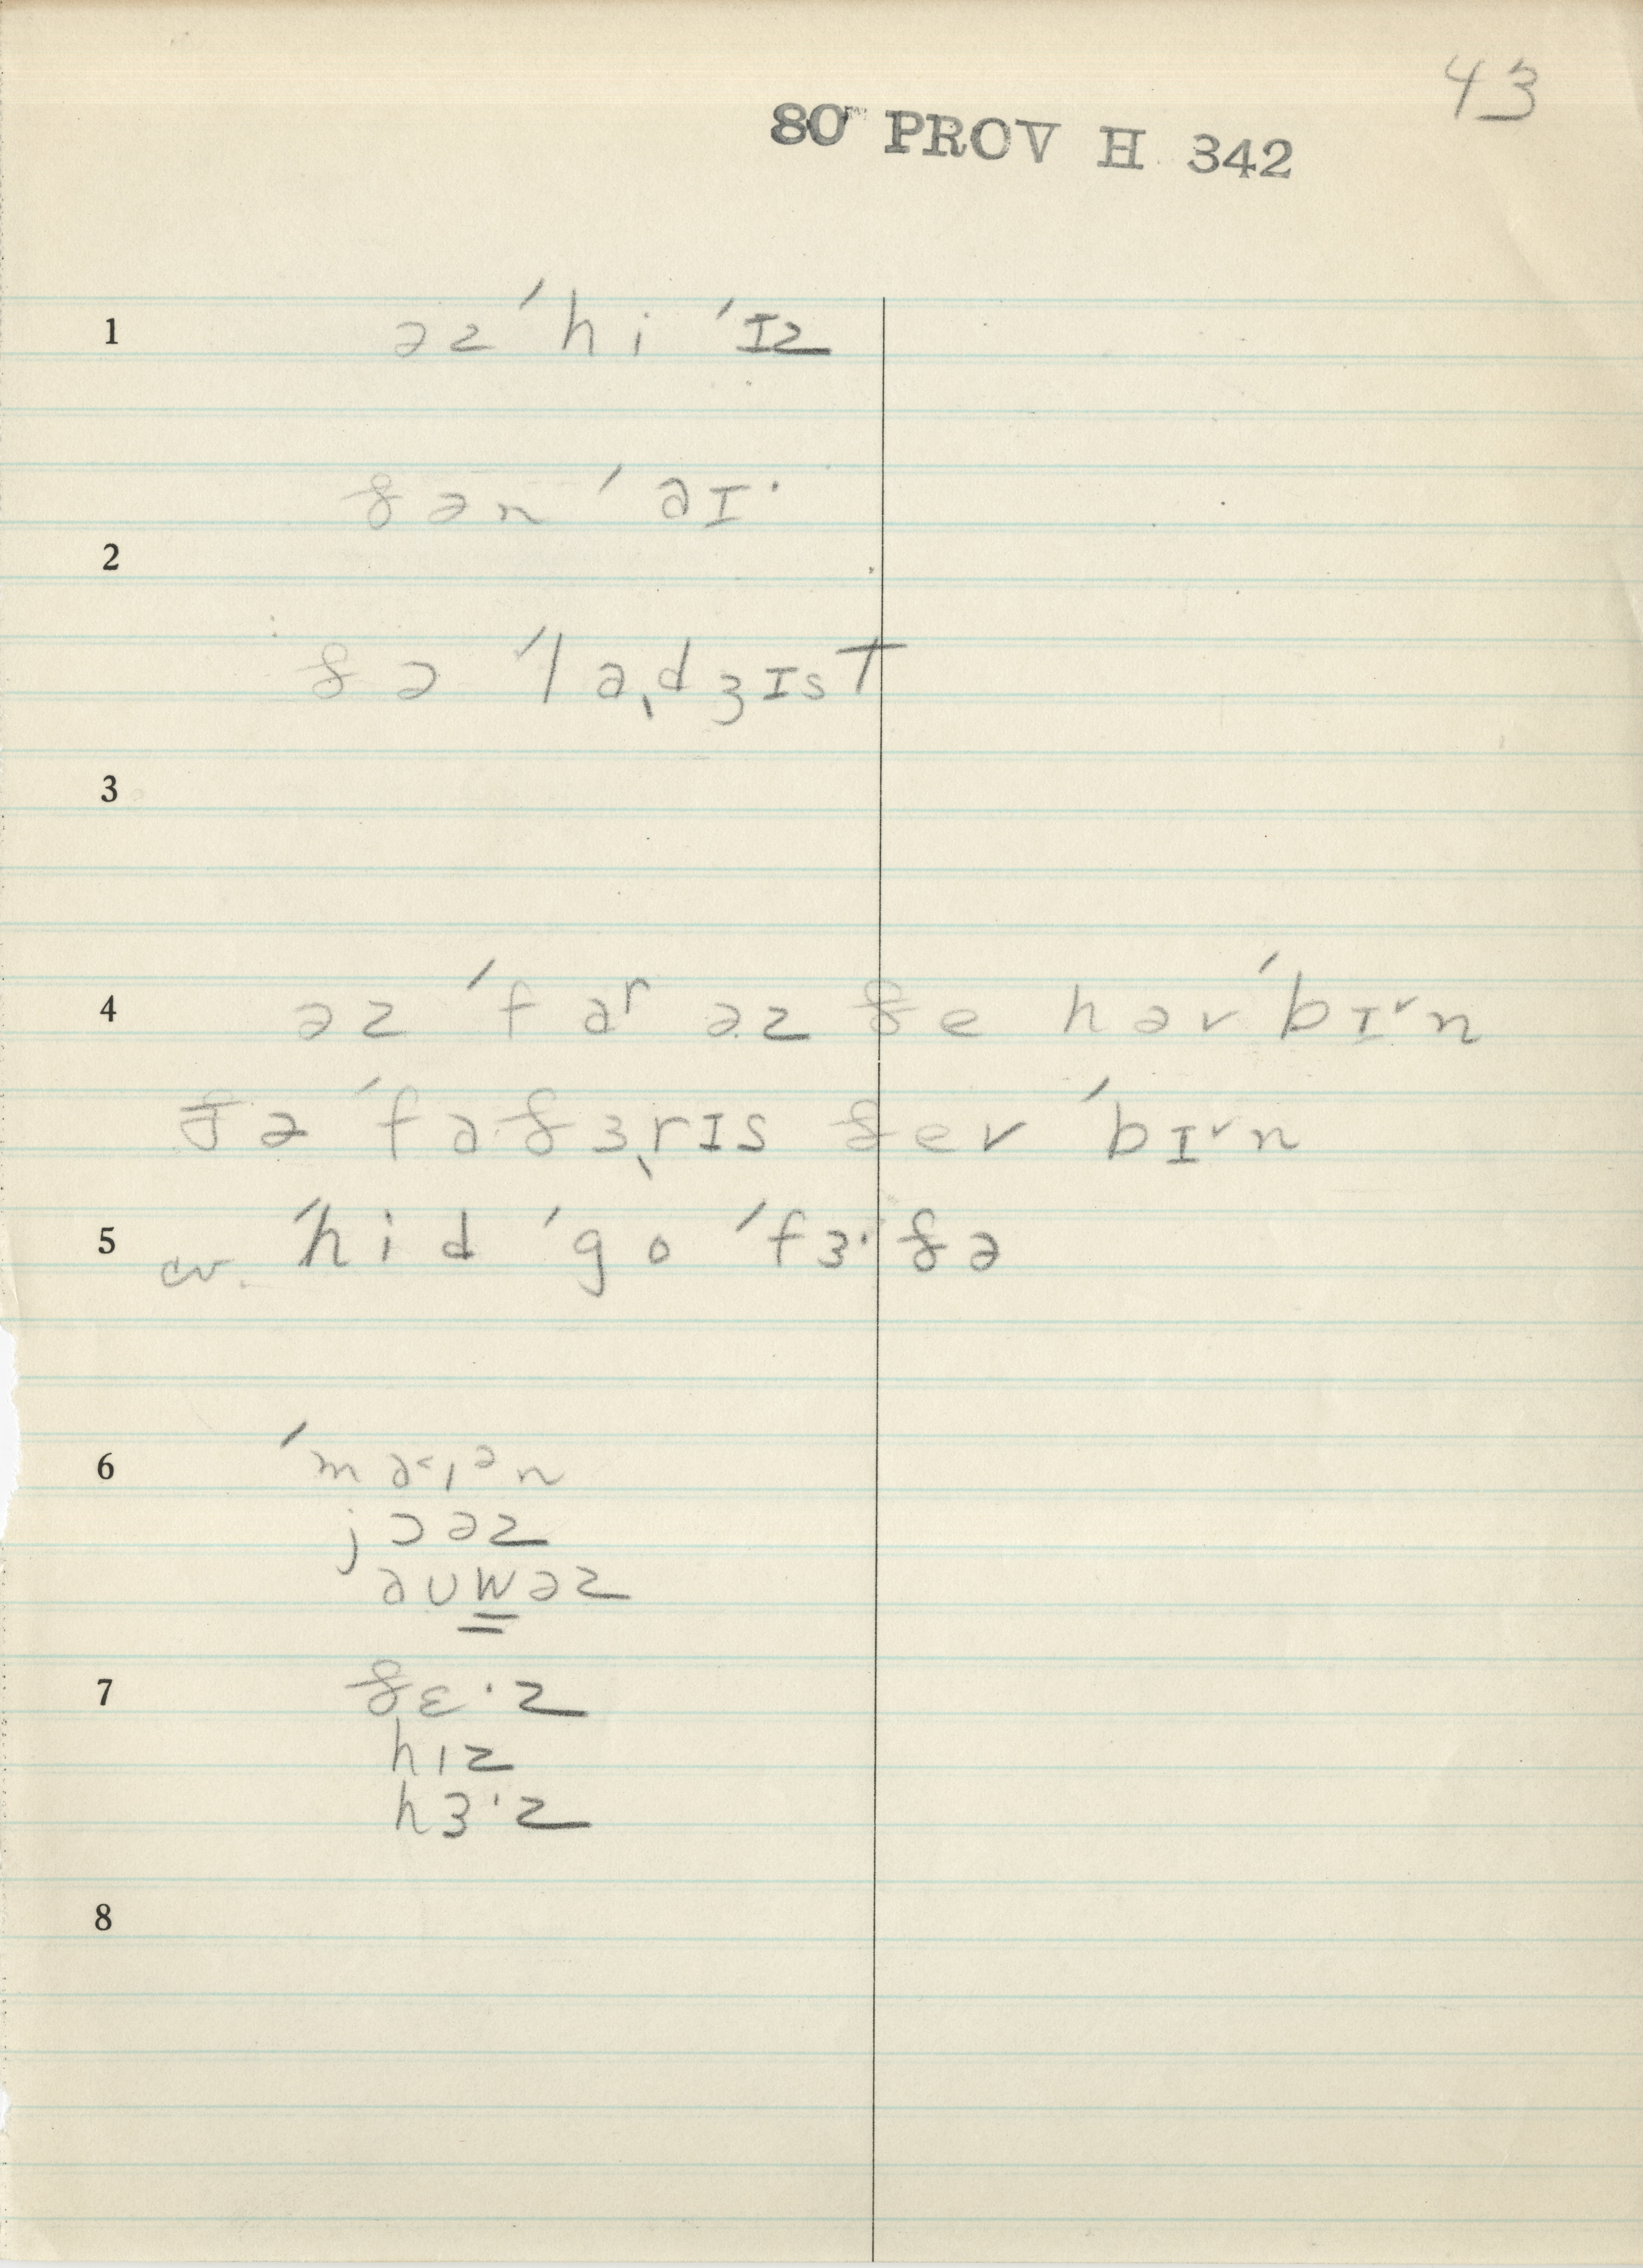 43
80 PROV H 342
1 əz ˈhi ˈɪz
ðən ˈaɪ·
2
ðə ˈlaˌdʒɪst
3
4 əz ˈfaʳ əz ðe həv ˈbɪ˅n
ðə ˈfaðɜˌrɪs ðev ˈbɪ˅n
5 cv. ˈhid ˈgo ˈfɜ·ðə
6 ˈma˂ɪᵊn
jɔəz
aʊwəz
7 ðɛ·z
hɪz
hɜ·z
8